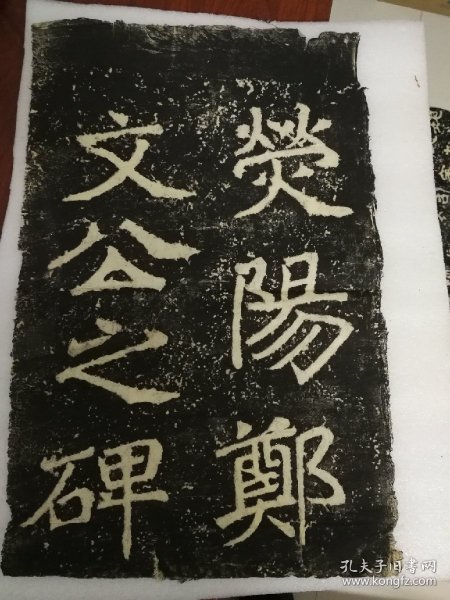 熒陽鄭
文公之碑
孔夫子旧书网
www.kongfz.com